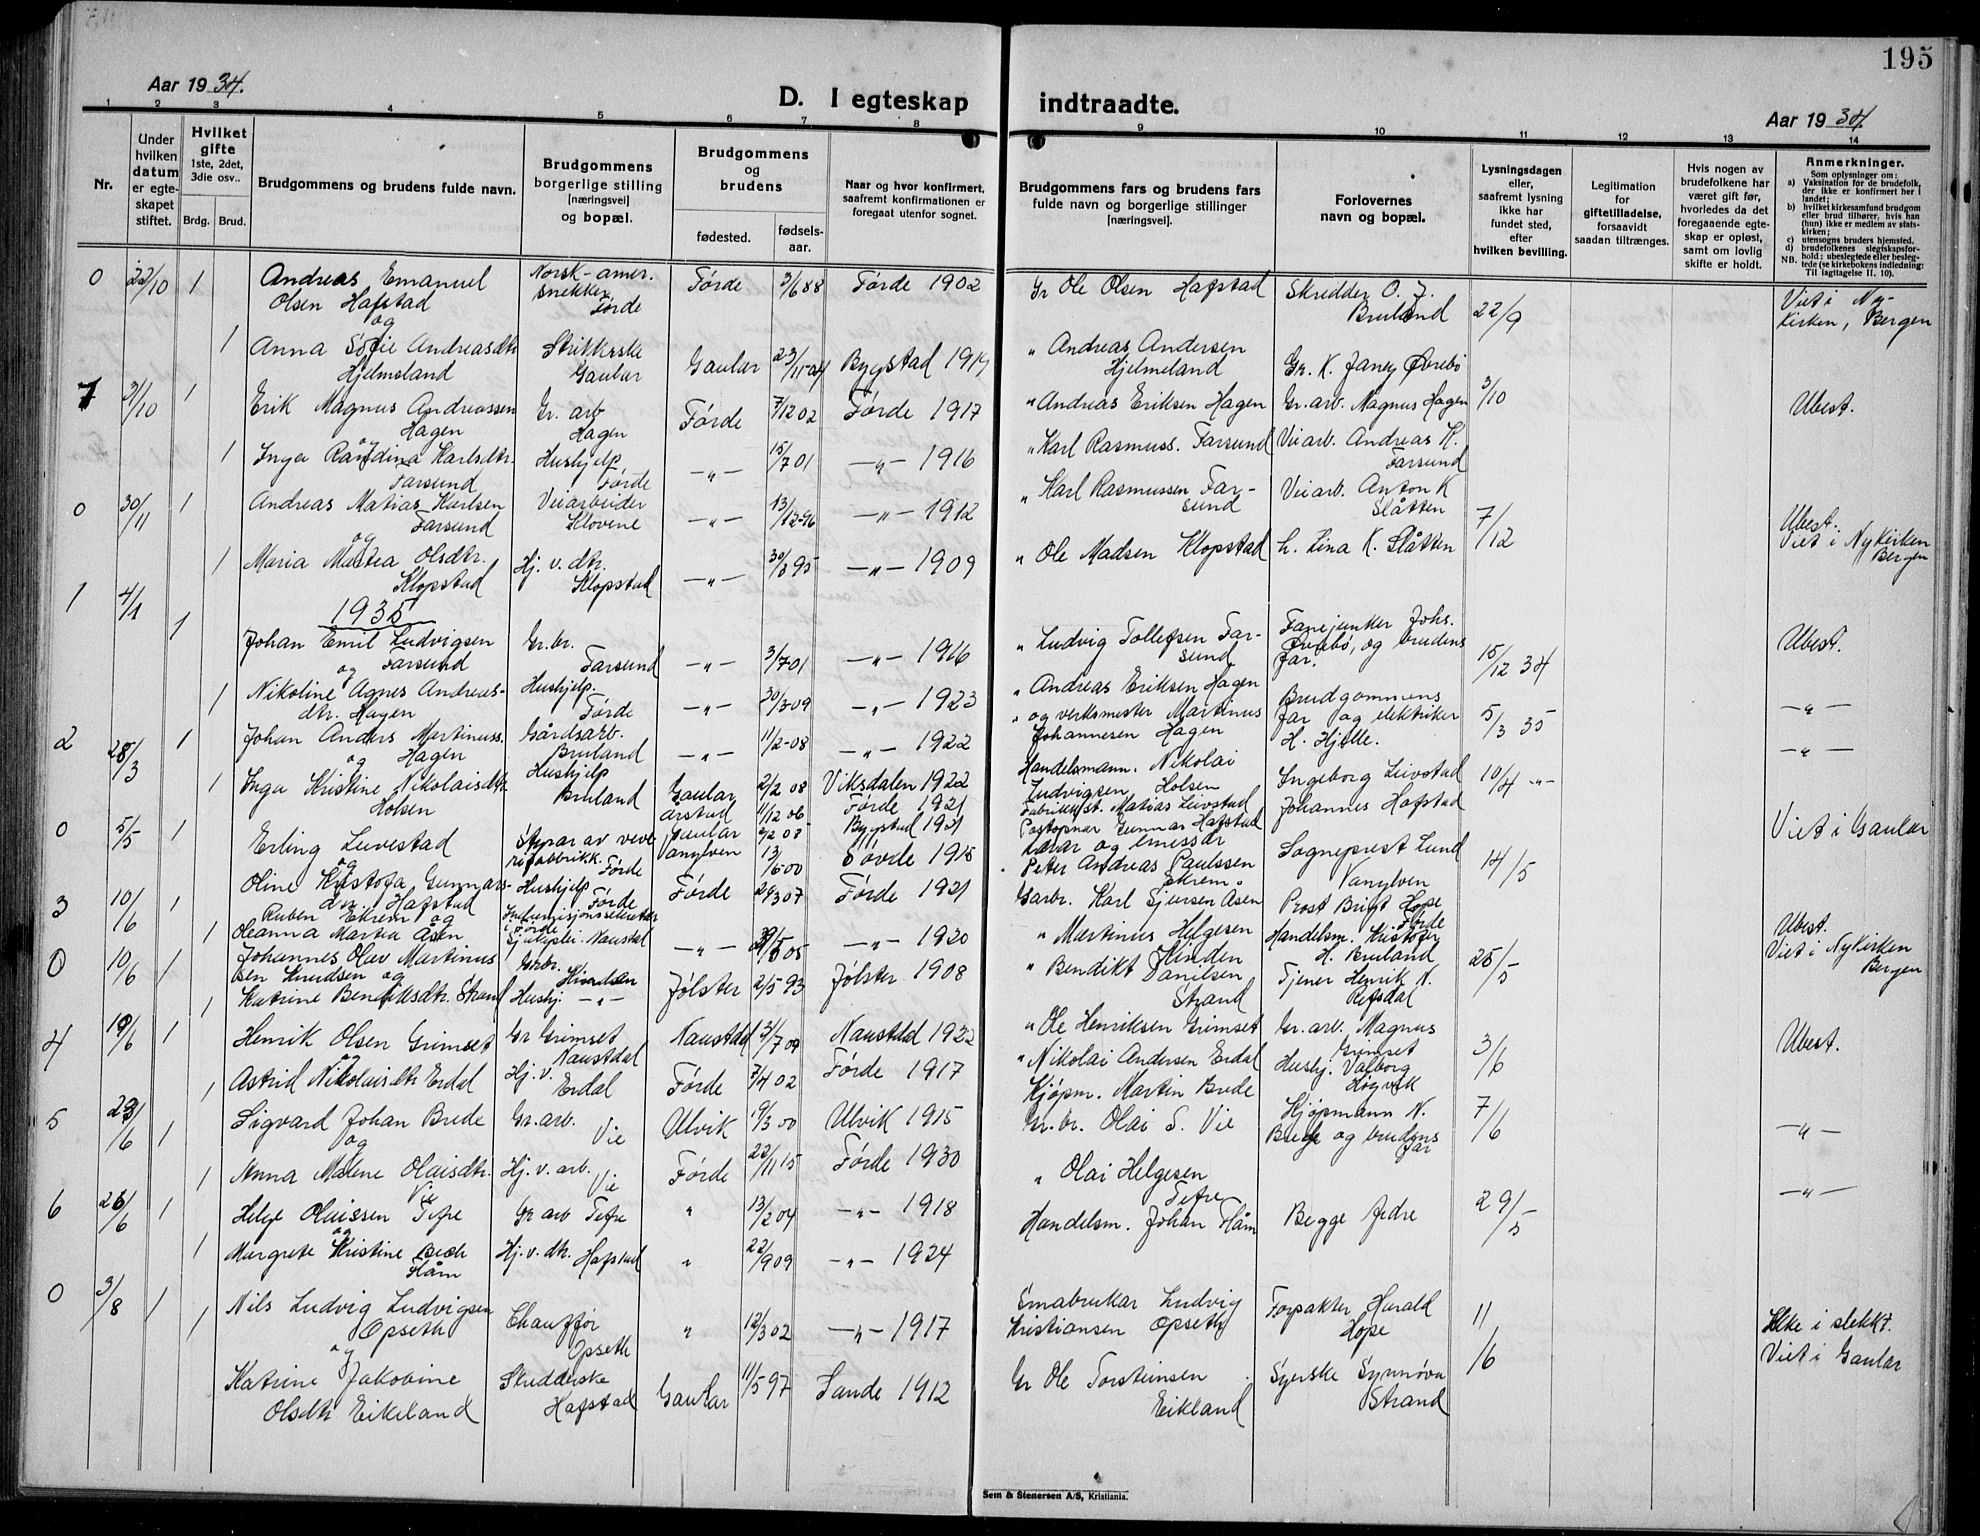 195
Aar 1934.
D. I egteskap indtraadte.
Aar 1934.
1 2 3 4 5 6 7 8 9 10 11 12 13 14
Nr.
Under hvilken datum er egteskapet stiftet.
Hvilket gifte 1ste, 2det, 3die osv..
Brdg. Brud.
Brudgommens og brudens fulde navn.
Brudgommens borgerlige stilling [næringsvei] og bopæl.
Brudgommens og brudens
fødested.
fødsels-aar.
Naar og hvor konfirmert, saafremt konfirmationen er foregaat utenfor sognet.
Brudgommens fars og brudens fars fulde navn og borgerlige stillinger [næringsvei].
Forlovernes navn og bopæl.
Lysningsdagen eller, saafremt lysning ikke har fundet sted, efter hvilken bevilling.
Legitimation for giftetilladelse, forsaavidt saadan tiltrænges.
Hvis nogen av brudefolkene har været gift før, hvorledes da det foregaaende egteskap er opløst, samt om lovlig skifte er holdt.
Anmerkninger.
Som oplysninger om:
a) Vaksination for de brudefolk, der ikke er konfirmert her i landet;
b) hvilket kirkesamfund brudgom eller brud tilhører, hvis han (hun) ikke er medlem av statskirken;
c) utensogns bruders hjemsted.
d) brudefolkenes slegtskapsforhold: ubeslegtede eller beslegtede (se kirkebokens indledning: NB. Til iagttagelse II. 10).
0 22/10 1 Andreas Emanuel Olsen Hafstad Norsk-amer. snekker Førde Førde 3/6 88 Førde 1902 Gr Ole Olsen Hafstad Skredder O. J. Bruland 22/9 Viet i Ny-kirken, Bergen
og
1 Anna Sofie Andreasdtr Hjelmeland Strikkerske Gaular Gaular 23/11-04 Bygstad 1919 " Andreas Andersen Hjelmeland Gr. K. Janey Øvrebø
7 31/10 1 Erik Magnus Andreassen Hagen Gr. arb Hagen Førde 7/12 02 Førde 1917 " Andreas Eriksen Hagen Gr. arb. Magnus Hagen 3/10 Ubest.
1 Inga Randina Karlsdtr. Farsund Hushjelp Førde -"- 15/7 01 -"- 1916 " Karl Rasmuss. Farsund Veiarb. Andreas K. Farsund
0 30/11 1 Andreas Matias Karlsen Farsund Veiarbeider Klovene -"- 13/12-96 -"- 1912 " Karl Rasmussen Farsund Veiarb. Anton K Slåtten 7/12 Ubest. Viet i Nykirken Bergen
og
1 Maria Martea Olsdtr. Klopstad Hj. v. dtr. Klopstad -"- 30/8 95 -"- 1909 " Ole Madsen Klopstad h. Lina K. Slåtten
1935
1 4/1 1 Johan Emil Ludvigsen Farsund Gr. br. Farsund -"- 3/7 01 -"- 1916 " Ludvig Tollefsen Farsund Fanejunker Johs. Øvrebø, og brudens far. 15/12 34 Ubest.
og
1 Nikoline Agnes Andreasdtr. Hagen Hushjelp. Førde -"- 30/3 09 -"- 1923 " Andreas Eriksen Hagen -"-
2 28/3 1 Johan Anders Martinuss. Hagen Gårdsarb. Bruland -"- 11/2-08 -"- 1922 " og verksmester Martinus Johannesen Hagen Brudgommens far og elektriker H. Hjelle. 5/3 35 -"-
og
1 Inga Kristine Nikolaisdtr Holsen Hushjelp Bruland Gaular 2/2 08 Viksdalen 1922 Handelsmann. Nikolai Ludvigsen Holsen
0 5/5 1 Erling Leivestad Førde Årstad 11/12 06 Førde 1921 Matias Leivstad Ingeborg Leivstad Johannes Hafstad 10/4 -"- Viet i Gaular
og
Oline Kristofa Gunnarsdtr. Hafstad Hushjelp Førde Gaular 2/2 08 Bygstad 1921 Postopnar Gunnar Hafstad
3 10/6 1 Ruben Ekrem og Førde Vanylven 13/6 00 Søvde 1915 Lærar og emessær Peter Andreas Paulssen Ekrem. Sogneprest Lund Vanylven 14/5 Ubest.
1 Oleanna Martea Åsen Naustdal Førde 24/3 07 Førde 1921 Garbr. Karl Sjursen Åsen Prost Brigt Hope Førde
0 10/6 1 Johannes Olav Martinussen Knudsen og Garbr. -"- -"- 1920 " Martinus Helgesen Handelsm. Kristofer H. Bruland 25/5 Viet i Nykirken Bergen
1 Katrine Bendiksdtr. Strand Hushj. -"- Jølster 2/5 93 Jølster 1908 " Bendikt Danilsen Strand Tjener Henrik N. Refsdal
4 19/6 1 Henrik Olsen Grimset Gr Grimset Naustdal Naustdal 31/7 09 Naustdal 1922 " Ole Henriksen Grimset Gr. arb. Magnus Grimset 3/6 Ubest.
og
1 Astrid Nikolaisdtr Erdal Hj. v. Erdal Førde 7/4 02 Førde 1917 " Nikolai Andersen Erdal Hushj. Valborg Høgvik
5 23/6 1 Sigvard Johan Brede Gr. arb. Vie Ulvik 19/3 00 Ulvik 1915 Kjøpm. Martin Brede Kjøpmann N. Brede og brudens far 7/6 -"-
og
1 Anna Malene Olaisdtr. Vie Hj. v. arb. Vie Førde 22/11 15 Førde 1930 Gr. br. Olai S. Vie
6 26/6 1 Helge Olaissen Tefre Gr arb Tefre " 13/2 04 -"- 1918 " Olai Helgesen Tefre Begge fedre 29/5 -"-
og
1 Margrete Kristine Flåm Hj. v. dtr. Hafstad " 22/9 09 -"- 1924 Handelsm. Johan Flåm
0 3/8 1 Nils Ludvig Ludvigsen Opseth Chauffør Opseth " 12/3 02 -"- 1917 Småbrukar Ludvig Kristiansen Opseth Forpakter Harald Hope 11/6 Ikke i slekt. Viet i Gaular
og
1 Katrine Jakobine Olsdtr Eikeland Skredderske Hafstad Gaular 11/5 97 Sande 1912 Gr Ole Torsteinsen Eikland Syerske Synnøva Strand
Sem & Stenersen A/S, Kristiania.